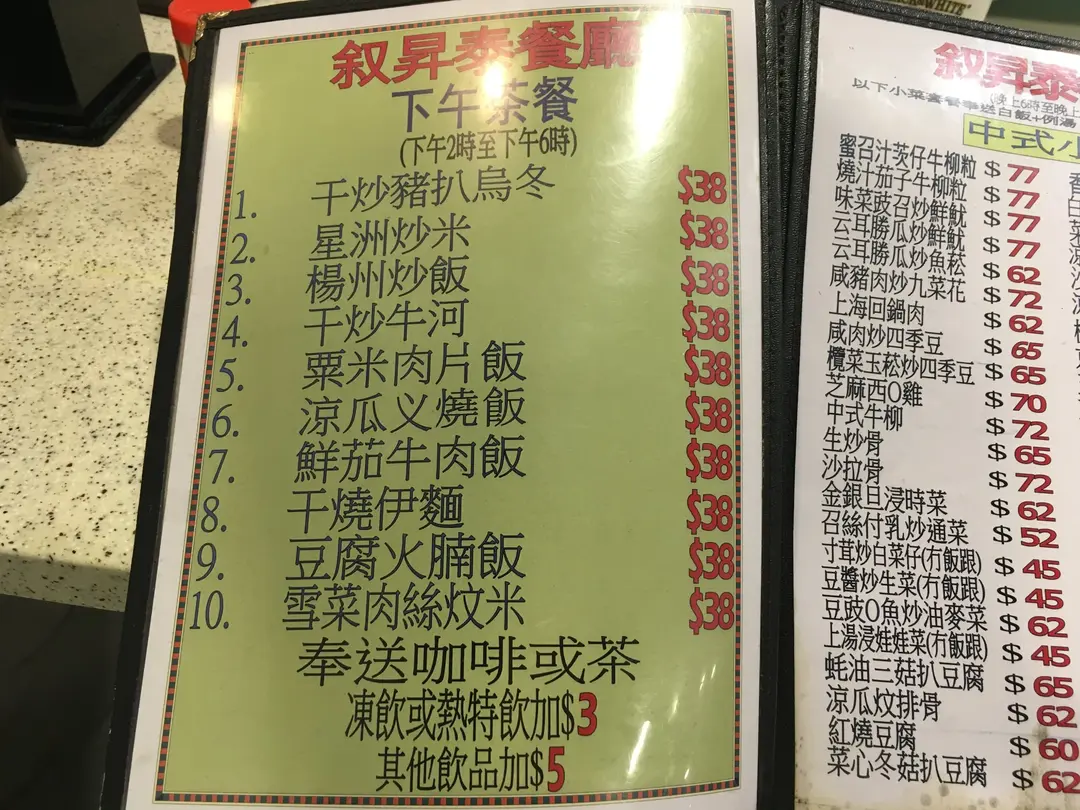 叙昇泰餐廳
下午茶餐
(下午2時至下午6時)
1. 干炒豬扒烏冬 $38
2. 星洲炒米 $38
3. 楊州炒飯 $38
4. 干炒牛河 $38
5. 粟米肉片飯 $38
6. 涼瓜义燒飯 $38
7. 鮮茄牛肉飯 $38
8. 干燒伊麵 $38
9. 豆腐火腩飯 $38
10. 雪菜肉絲炆米 $38
奉送咖啡或茶
凍飲或熱特飲加$3
其他飲品加$5
叙昇泰
(晚上6時至晚上
以下小菜套餐奉送白飯+例湯
中式小
蜜召汁茨仔牛柳粒 $77
燒汁茄子牛柳粒 $77
味菜豉召炒鮮魷 $77
云耳勝瓜炒鮮魷 $77
云耳勝瓜炒魚菘 $62
咸豬肉炒九菜花 $72
上海回鍋肉 $62
咸肉炒四季豆 $65
欖菜玉菘炒四季豆 $65
芝麻西O雞 $70
中式牛柳 $72
生炒骨 $65
沙拉骨 $72
金銀旦浸時菜 $62
召絲付乳炒通菜 $52
寸茸炒白菜仔(冇飯跟) $45
豆醬炒生菜(冇飯跟) $45
豆豉O魚炒油麥菜 $62
上湯浸娃娃菜(冇飯跟) $45
蚝油三菇扒豆腐 $65
涼瓜炆排骨 $62
紅燒豆腐 $60
菜心冬菇扒豆腐 $62